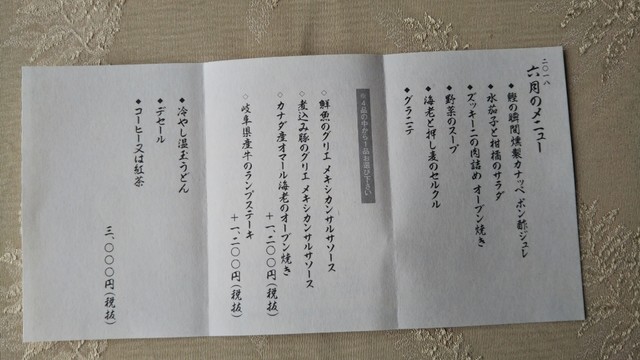 二〇一八
六月のメニュー
◆ 鰹の瞬間燻製カナッペ ポン酢ジュレ
◆ 水茄子と柑橘のサラダ
◆ ズッキーニの肉詰め オーブン焼き
◆ 野菜のスープ
◆ 海老と押し麦のセルクル
◆ グラニテ
※4品の中から1品お選び下さい
○ 鮮魚のグリエ メキシカンサルサソース
○ 煮込み豚のグリエ メキシカンサルサソース
○ カナダ産オマール海老のオーブン焼き
＋一、二〇〇円(税抜)
○ 岐阜県産牛のランプステーキ
＋一、二〇〇円(税抜)
◆ 冷やし温玉うどん
◆ デセール
◆ コーヒー又は紅茶
三、〇〇〇円(税抜)